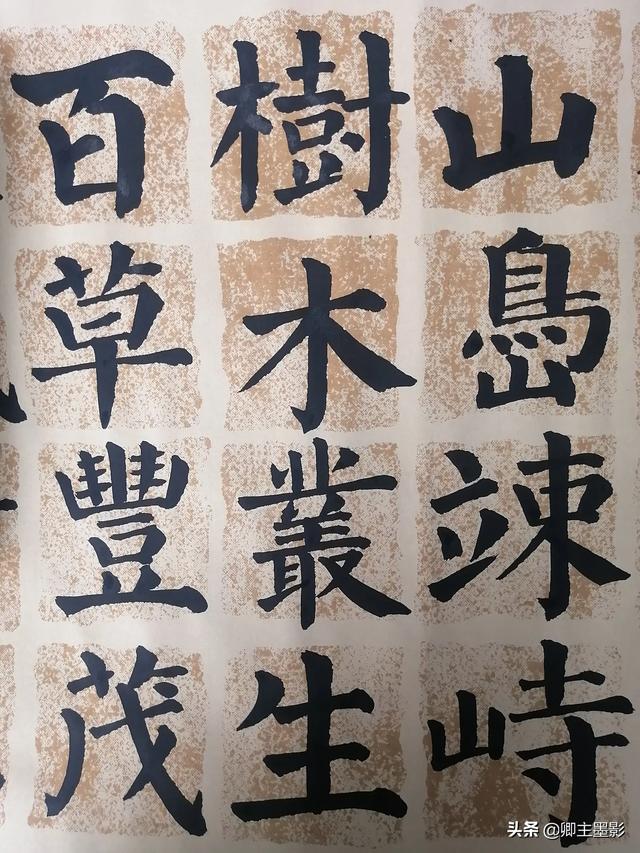 山島竦峙
樹木叢生
百草豐茂
头条 @卿主墨影